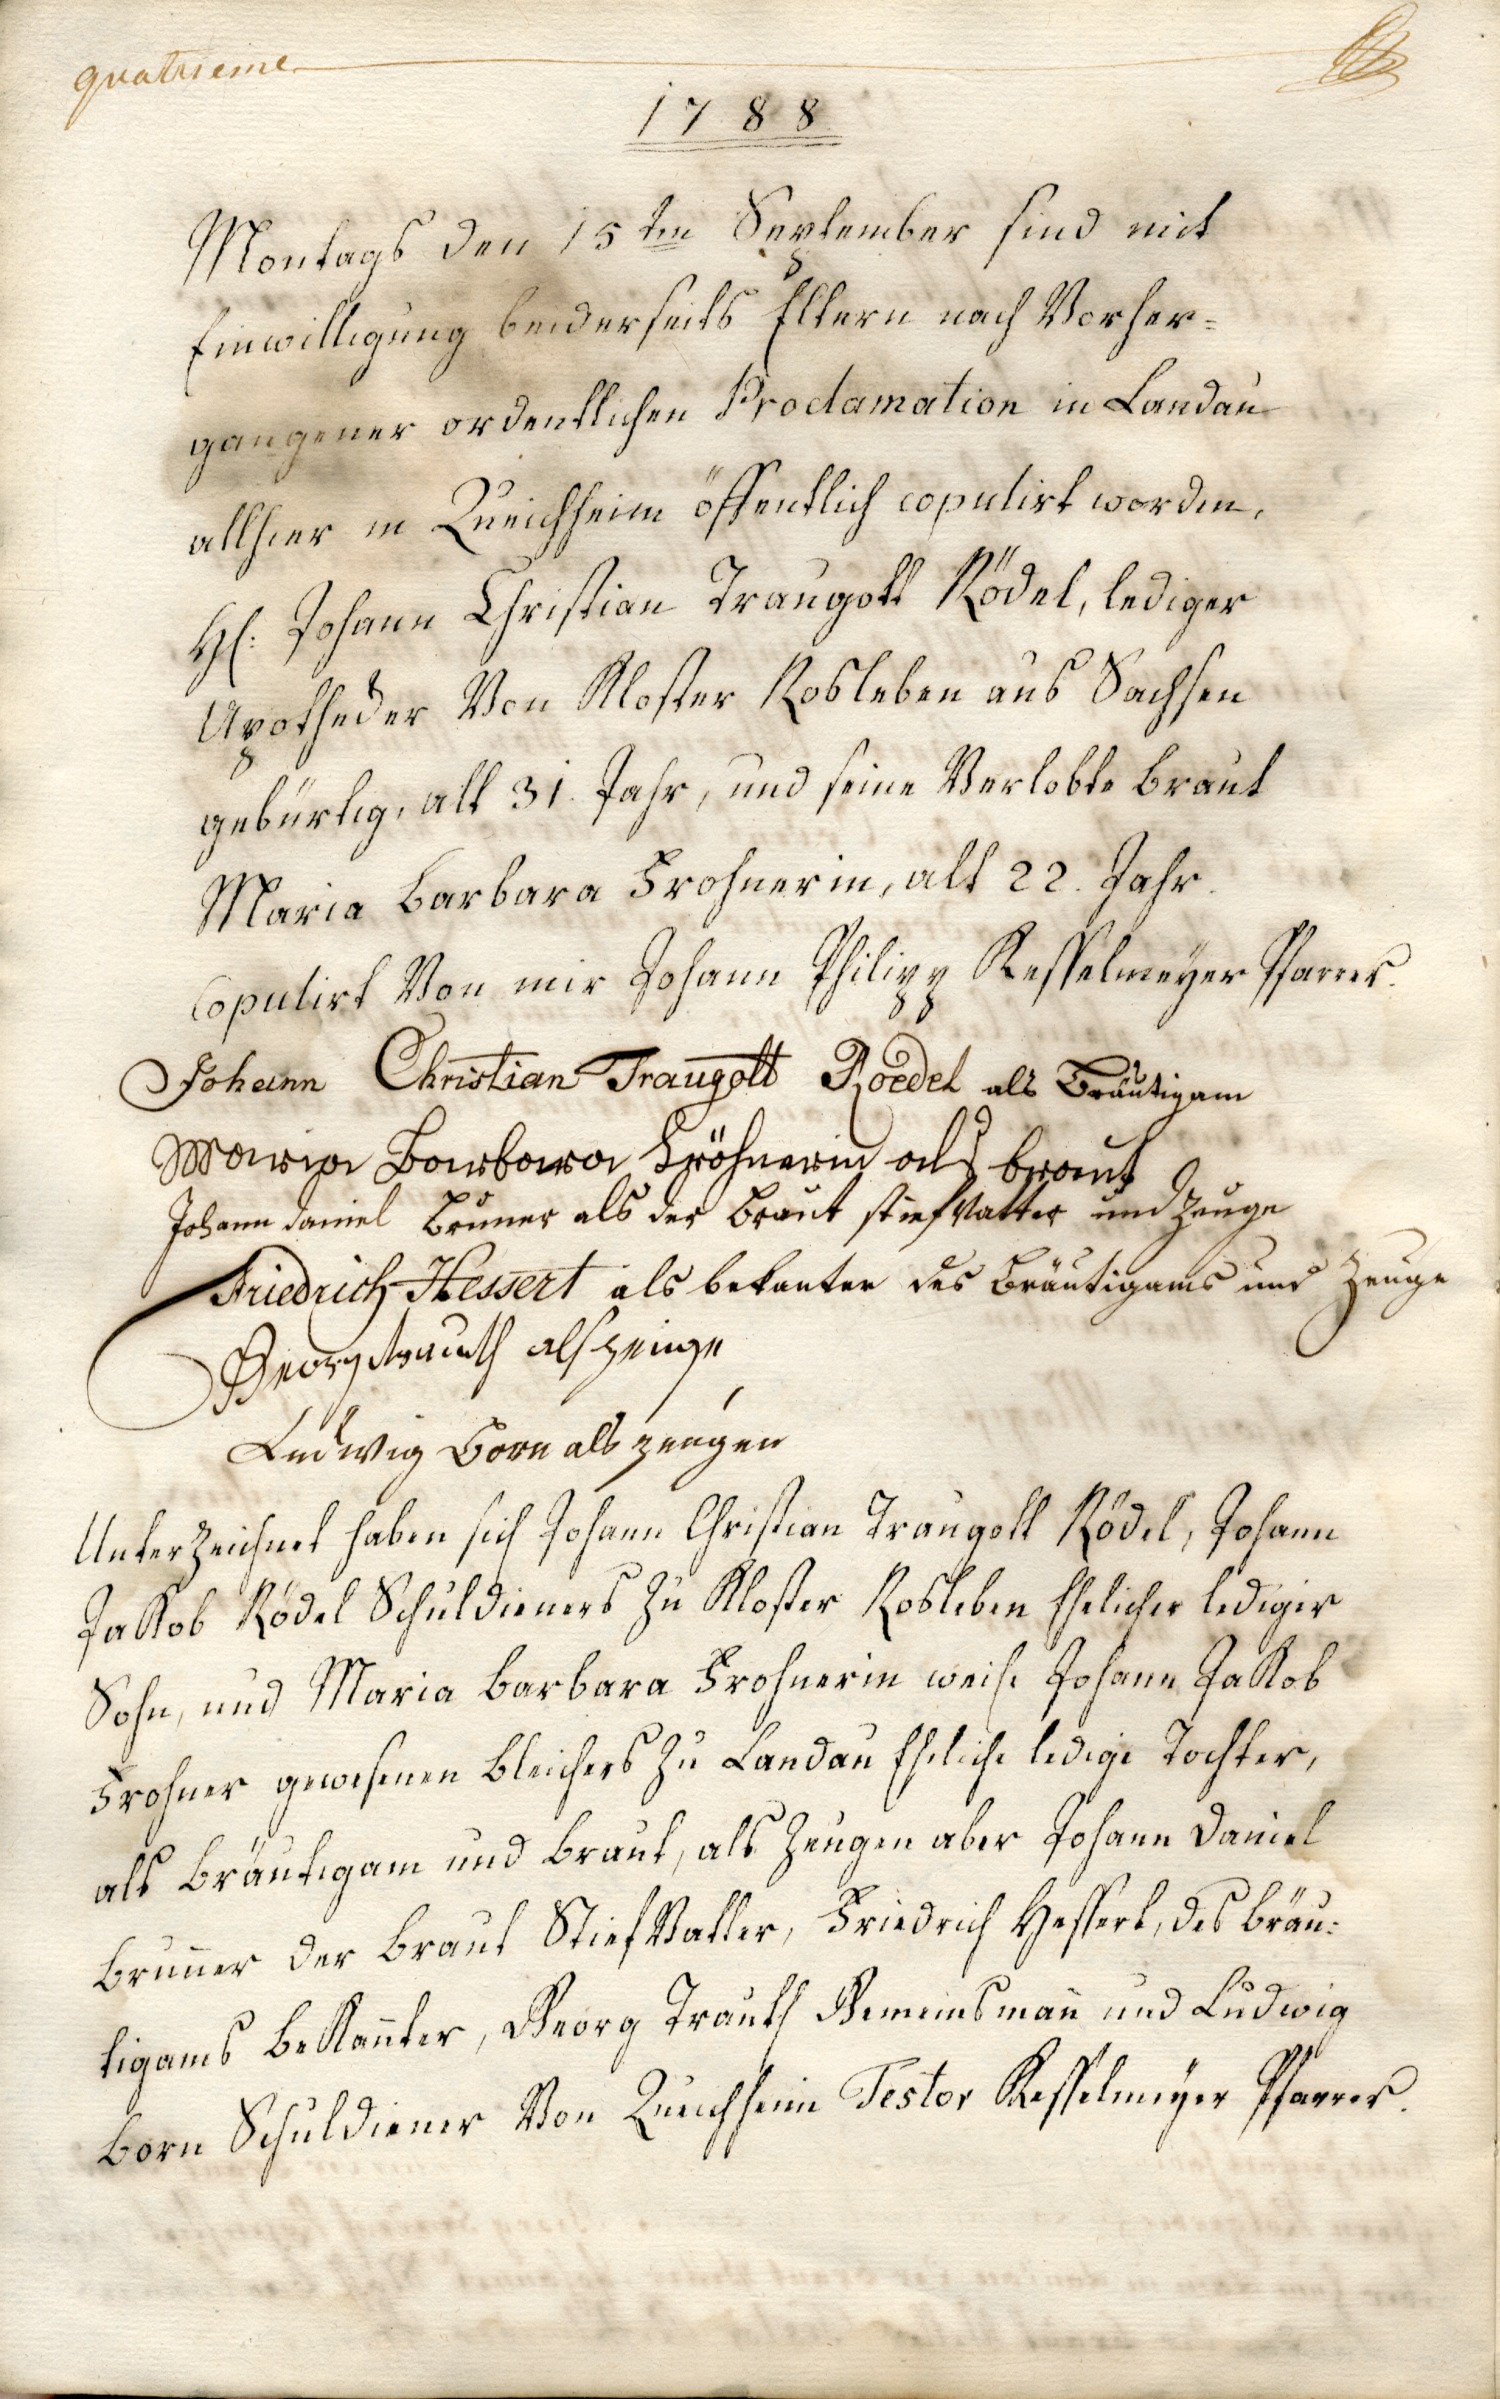 quatrieme
1788
Montags den 15ten September sind mit
Einwilligung beiderseits Eltern nach Vorher=
gangener ordentlichen Proclamation in Landau
allhier in Queichheim öffentlich copulirt worden,
H: Johann Christian Traugott Rödel, lediger
Apotheker Von Kloster Rosleben aus Sachsen
gebürtig, alt 31. Jahr, und seine Verlobte Braut
Maria Barbara Frohnerin, alt 22. Jahr.
Copulirt Von mir Johann Philipp Kesselmeyer Pfarrer.
Johann Christian Traugott Roedel als Bräutigam
Maria Barbara Fröhnerin als braut
Johann Daniel Bruner als der Braut stiefVatter und Zeuge
Friedrich Hessert als bekanter des Bräutigams und Zeuge
Georg trauth als zeuge
Ludwig Born als zeugen
Unterzeichnet haben sich Johann Christian Traugott Rödel, Johann
Jakob Rödel Schuldieners zu Kloster Rosleben Ehelicher lediger
Sohn, und Maria Barbara Frohnerin weil. Johann Jakob
Frohner gewesenen Bleichers zu Landau Eheliche ledige Tochter,
als Bräutigam und Braut, als Zeugen aber Johann Daniel
Bruñer der Braut StiefVatter, Friedrich Hessert, des Bräu=
tigams bekañter, Georg Trauth Gemeinsmañ und Ludwig
Born Schuldiener Von Queichheim Testor Kesselmeyer Pfarrer.